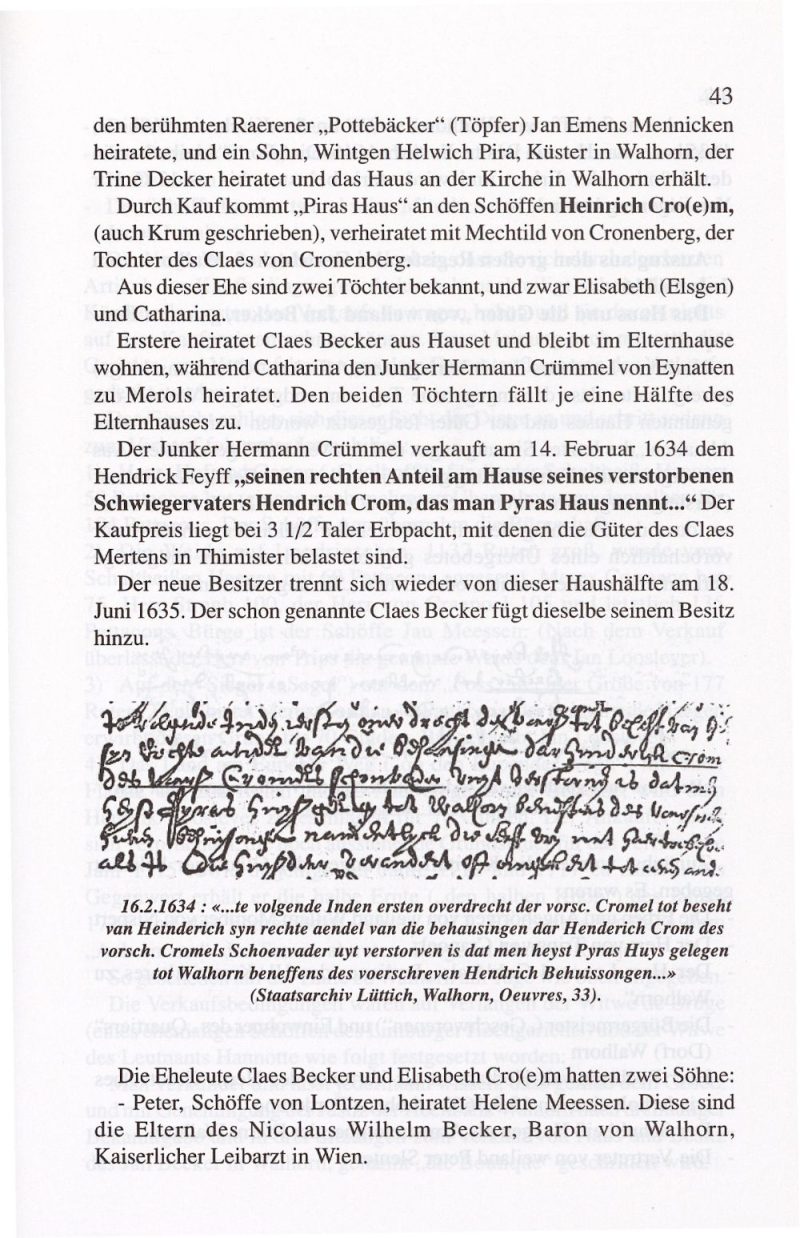 43
den berühmten Raerener „Pottebäcker“ (Töpfer) Jan Emens Mennicken
heiratete, und ein Sohn, Wintgen Helwich Pira, Küster in Walhorn, der
Trine Decker heiratet und das Haus an der Kirche in Walhorn erhält.
Durch Kauf kommt „Piras Haus“ an den Schöffen Heinrich Cro(e)m,
(auch Krum geschrieben), verheiratet mit Mechtild von Cronenberg, der
Tochter des Claes von Cronenberg.
Aus dieser Ehe sind zwei Töchter bekannt, und zwar Elisabeth (Elsgen)
und Catharina.
Erstere heiratet Claes Becker aus Hauset und bleibt im Elternhause
wohnen, während Catharina den Junker Hermann Crümmel von Eynatten
zu Merols heiratet. Den beiden Töchtern fällt je eine Hälfte des
Elternhauses zu.
Der Junker Hermann Crümmel verkauft am 14. Februar 1634 dem
Hendrick Feyff „seinen rechten Anteil am Hause seines verstorbenen
Schwiegervaters Hendrich Crom, das man Pyras Haus nennt...“ Der
Kaufpreis liegt bei 3 1/2 Taler Erbpacht, mit denen die Güter des Claes
Mertens in Thimister belastet sind.
Der neue Besitzer trennt sich wieder von dieser Haushälfte am 18.
Juni 1635. Der schon genannte Claes Becker fügt dieselbe seinem Besitz
hinzu.
16.2.1634 : «...te volgende Inden ersten overdrecht der vorsc. Cromel tot beseht
van Heinderich syn rechte aendel van die behausingen dar Henderich Crom des
vorsch. Cromels Schoenvader uyt verstorven is dat men heyst Pyras Huys gelegen
tot Walhorn beneffens des voerschreven Hendrich Behuissongen...»
(Staatsarchiv Lüttich, Walhorn, Oeuvres, 33).
Die Eheleute Claes Becker und Elisabeth Cro(e)m hatten zwei Söhne:
- Peter, Schöffe von Lontzen, heiratet Helene Meessen. Diese sind
die Eltern des Nicolaus Wilhelm Becker, Baron von Walhorn,
Kaiserlicher Leibarzt in Wien.